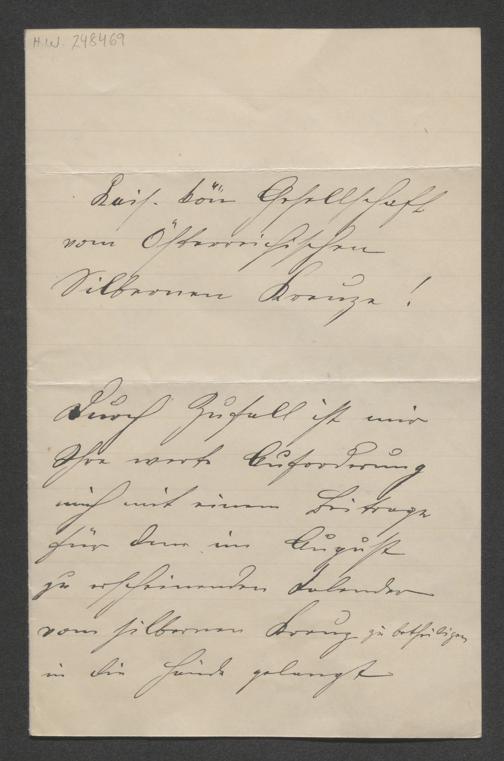 H.I.N. 248469
Kais. kön Gesellschaft
vom Österreichischen
Silbernen Kreuze!
Durch Zufall ist mir
Ihre werte Aufforderung
mich mit einem Beitrage
für den im August
zu erscheinenden Kalender
vom silbernen Kreuz zu betheiligen
in die Hände gelangt